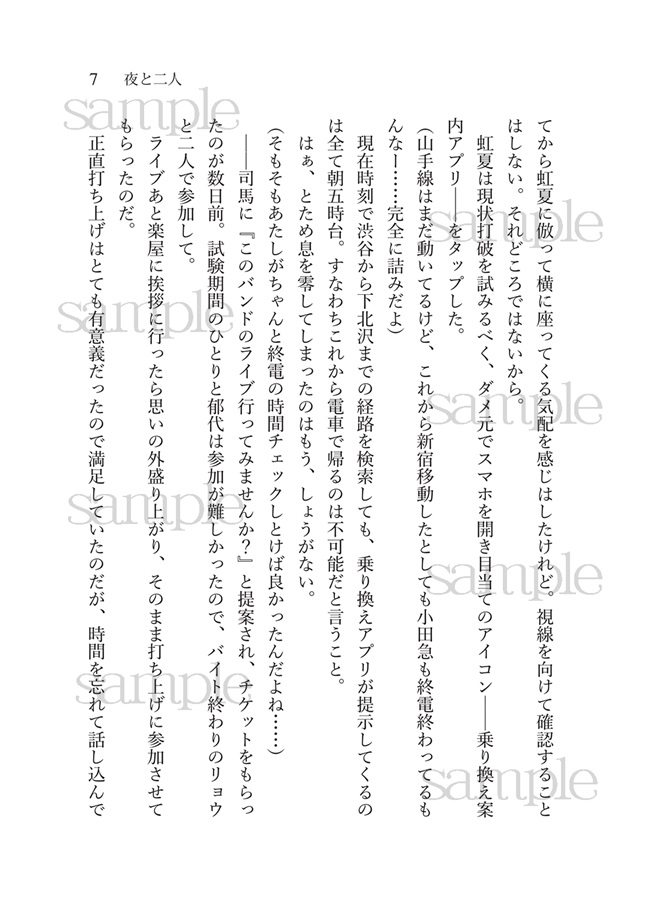 7 夜と二人
てから虹夏に倣って横に座ってくる気配を感じはしたけれど。視線を向けて確認すること
はしない。それどころではないから。
虹夏は現状打破を試みるべく、ダメ元でスマホを開き目当てのアイコン――乗り換え案
内アプリ――をタップした。
(山手線はまだ動いてるけど、これから新宿移動したとしても小田急も終電終わってるも
んなー……完全に詰みだよ)
現在時刻で渋谷から下北沢までの経路を検索しても、乗り換えアプリが提示してくるの
は全て朝五時台。すなわちこれから電車で帰るのは不可能だと言うこと。
はぁ、とため息を零してしまったのはもう、しょうがない。
(そもそもあたしがちゃんと終電の時間チェックしとけば良かったんだよね……)
――司馬に『このバンドのライブ行ってみませんか?』と提案され、チケットをもらっ
たのが数日前。試験期間のひとりと郁代は参加が難しかったので、バイト終わりのリョウ
と二人で参加して。
ライブあと楽屋に挨拶に行ったら思いの外盛り上がり、そのまま打ち上げに参加させて
もらったのだ。
正直打ち上げはとても有意義だったので満足していたのだが、時間を忘れて話し込んで
sample
sample
sample
sample
sample
sample
sample
sample